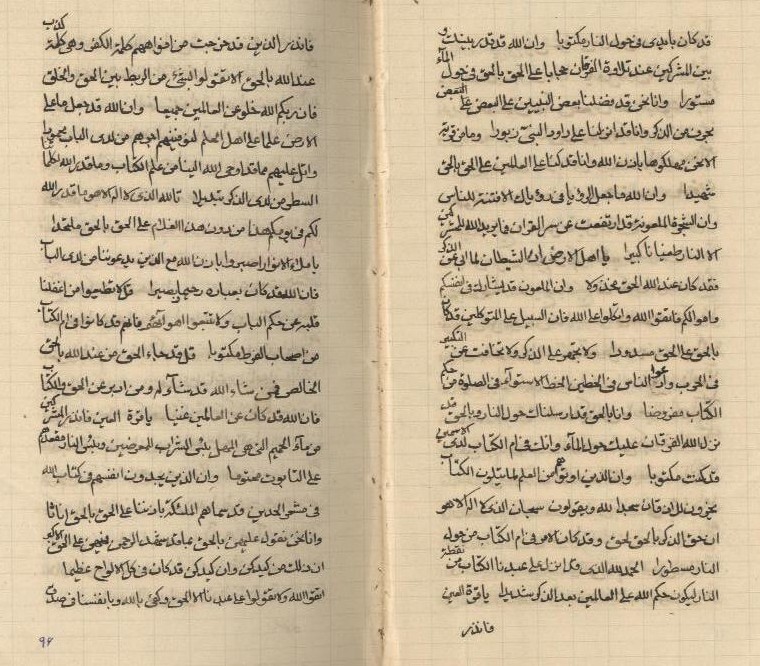 قد كان بايدي في حول النار مكتوبا وان الله قد قدر بينك و
بين المشركين عند تلاوة الفرقان حجابا على الحق بالحق في حول الماء
مستورا وانا نحن قد فضلنا بعض النبيين على البعض
بحرف من الذكر وانا قد انزلنا على داود النبي زبورا وما من قرية
الا نحن مهلكوها باذن الله وانا قد كنا على العالمين على الحق بالحق
شهيدا وان الله ما جعل الرؤيا في رؤياك الا فتنة للناس
وان الشجرة الملعونة قد ارتفعت عن سر القران فما يريد الله للمشركين
الا النار طغيانا كبيرا يا اهل الارض ان الشيطان لما ابى عن الذكر
فقد كان عند الله الحق مخذولا وان الملعون قد يشارك في انفسكم
واموالكم فاتقوا الله واتكلوا على الله فان السبيل على المتوكلين قد كان
بالحق على الحق مسدودا ولا تجهر على الذكر ولا تخافت عن التكبير
في الحرب وان الناس في الخطين الخط الاستواء في الصلوة من حكم
الكتاب مفروضا وانا بالحق قد ارسلناك حول النار وبالحق قد
نزل الله الفرقان عليك حول الماء وانك في ام الكتاب لدى
قد كنت مكتوبا وان الذين اوتوا من العلم لما يتلون الكتاب
يخرون للاذقان سجدا لله ويقولون سبحان الذي لا اله الا هو
ان حق الذكر بالحق لحق وقد كان الامر في ام الكتاب من حول
النار مسطورا الحمد لله الذي قد انزل على عبدنا الكتاب من نقطة
النار ليكون حكم الله على العالمين بعد الذكر شديدا يا قرة العين
فانذر
فانذر الذين قد خرجت من افواههم كلمة الكفر وهي كلمة كذب
عند الله بالحق الا تقولوا لشيء من الربط بين الحق والخلق
فان ربكم الله خلو عن العالمين جميعا وان الله قد جعل ما على
الارض علما على اهل العلم لمؤمنهم ايهم من لدى الباب محبوبا
واتل عليهم مما قد اوحى الله الينا من علم الكتاب وما قدر الله لكلماتنا
السطر من لدى الذكر تبديلا تالله الذي لا اله الا هو ما قدر الله
لكم في يومكم هذا من دون هذا الغلام على الحق بالحق ملتحدا
يا ملاء الانوار اصبروا باذن الله مع الذين يدعوننا من لدى الباب
فان الله قد كان بعباده رحيما بصيرا قل لا تطيعوا من اغفلنا
قلبه عن حكم الباب ولا تتبعوا اهوائهم فانهم قد كانوا في ام الكتاب
من اصحاب الفرط مكتوبا قل قد جاء الحق من عند الله بالحق
الخالص فمن شاء الله قد شاء له ومن ادبر عن الحق والكتاب
فان الله قد كان عن العالمين غنيا يا قرة العين فانذر المشركين
من ماء الحميم التي هي المهل بئس الشراب للمعرضين وبئس النار مقعدهم
على التابوت محتوما وان الذين يجدون انفسهم في كتاب الله
في مشعر الحدين قد سماهم الملئكة باذننا على الحق بالحق اناثا
وانا نحن نقول عليهم بالحق بما قد سمعت الرحمن فيهن على الحق
ان ذلك من كيدكن وان كيدكن قد كان في كل الالواح عظيما
اتقوا الله ولا تقولوا على عبدنا الا الحق وكفى بالله وبانفسنا في صدق
٩۶